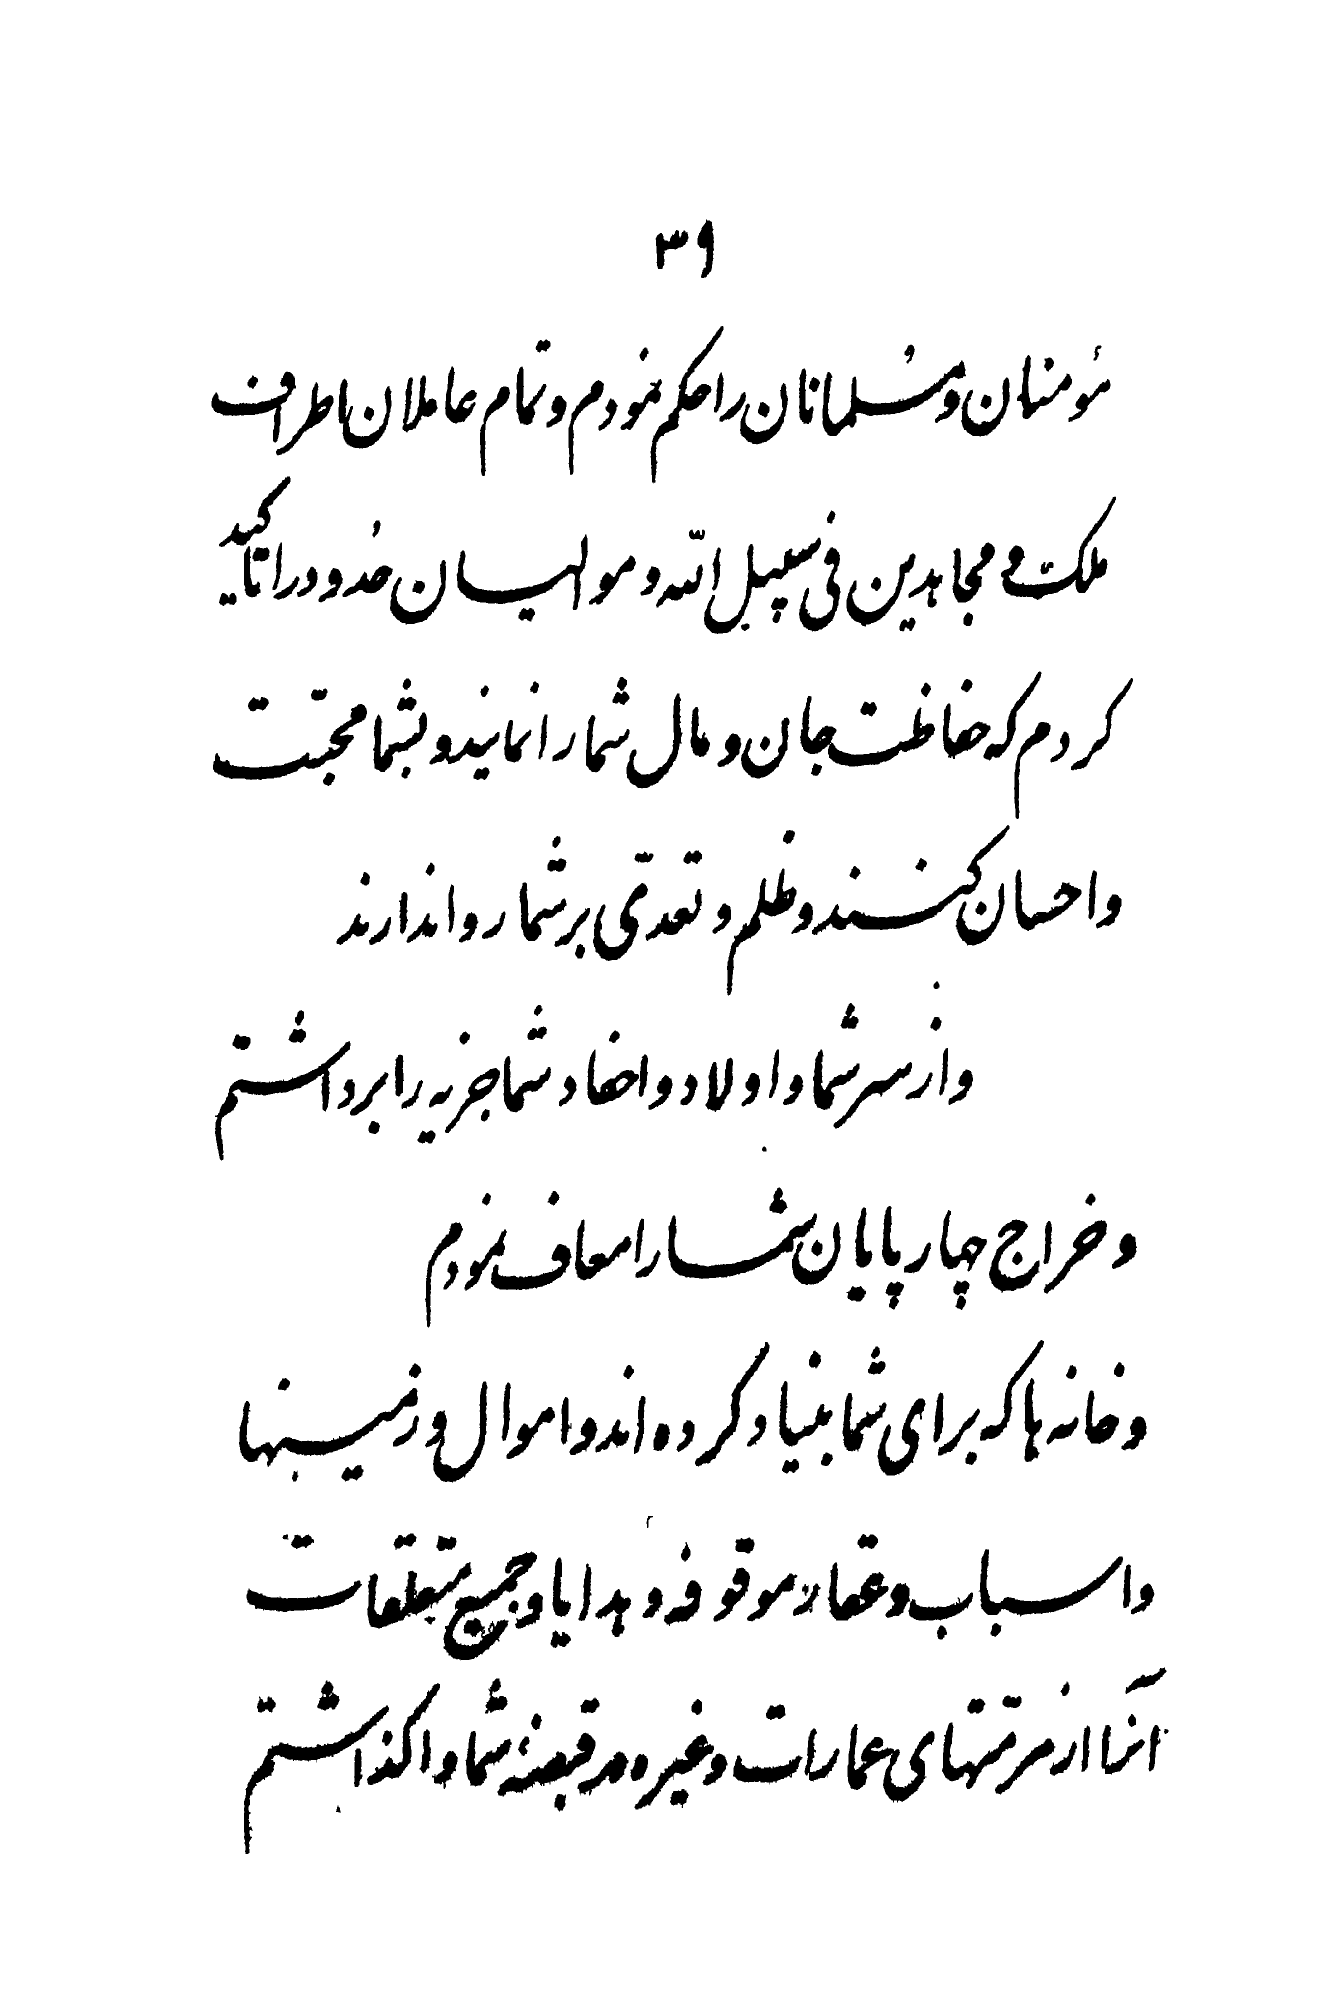 ۳۹
مؤمنان و مسلمانان را حکم نمودم و تمام عاملان اطراف
ملکت و مجاهدین فی سبیل الله و موالیان حُدود را تاکید
کردم که حفاظت جان و مال شما را نمایند و بشما محبّت
و احسان کنند و ظلم و تعدّی بر شما روا ندارند
و از سر شما و اولاد و احفاد شما جزیه را برداشتم
و خراج چهارپایان شما را معاف نمودم
و خانه ها که برای شما بنیاد کرده اند و اموال و زمینها
و اسباب و عقار موقوفه و هدایا و جمیع متعلقات
آنرا از مرمتهای عمارات و غیره در قبضهٔ شما واگذاشتم